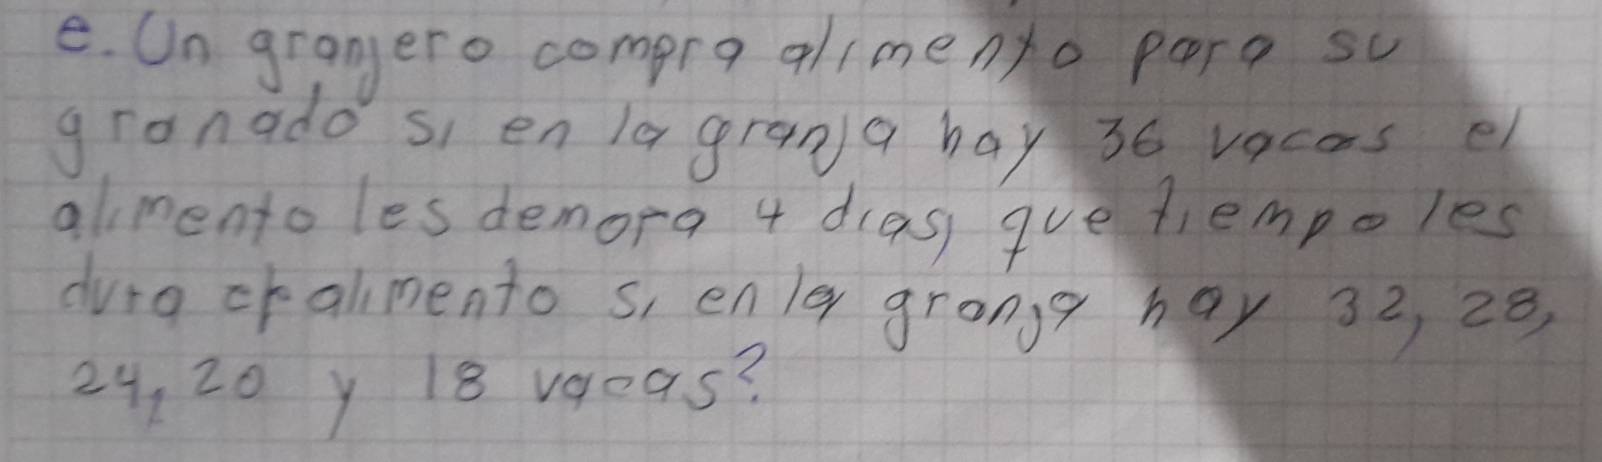 e. Un granjero compra alimento para su
granado si en la granja hay 36 vacas el
alimento les demora 4 dias, que tiempo les
dura el alimento si en la granja hay 32, 28,
24, 20 y 18 vacas?